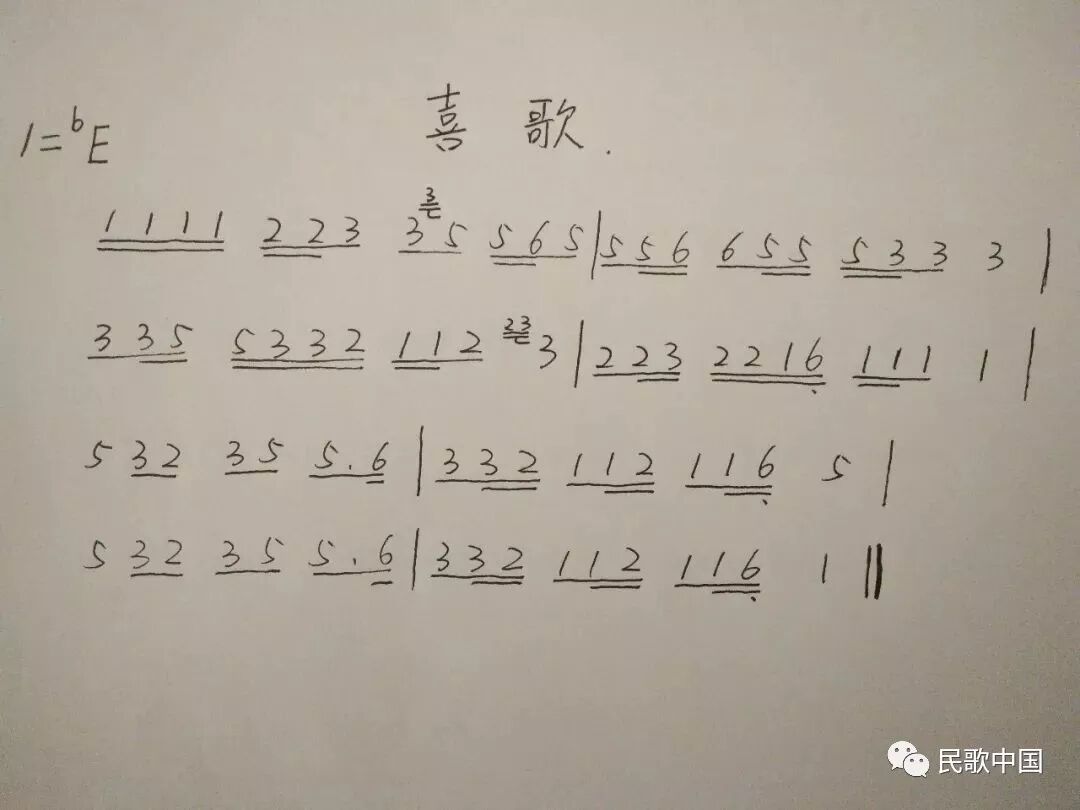 喜 歌.
1=ᵇE
3
1 1 1 1 2 2 3 3 5 5 6 5 | 5 5 6 6 5 5 5 3 3 3 |
23
3 3 5 5 3 3 2 1 1 2 3 | 2 2 3 2 2 1 6̣ 1 1 1 1 |
5 3 2 3 5 5. 6 | 3 3 2 1 1 2 1 1 6̣ 5 |
5 3 2 3 5 5. 6 | 3 3 2 1 1 2 1 1 6̣ 1 ‖
民歌中国